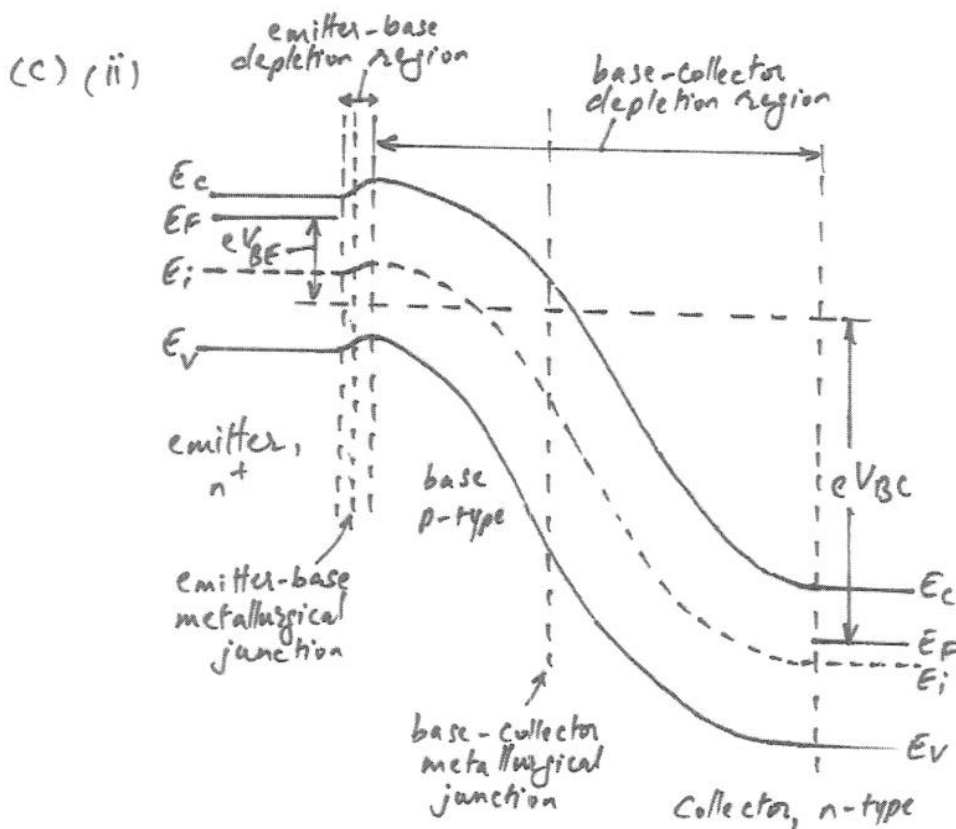 (c) (ii)
emitter-base
depletion region
base-collector
depletion region
Ec
EF
eVBE
Ei
Ev
emitter,
n+
base
p-type
eVBC
emitter-base
metallurgical
junction
base-collector
metallurgical
junction
Ec
EF
Ei
Ev
Collector, n-type